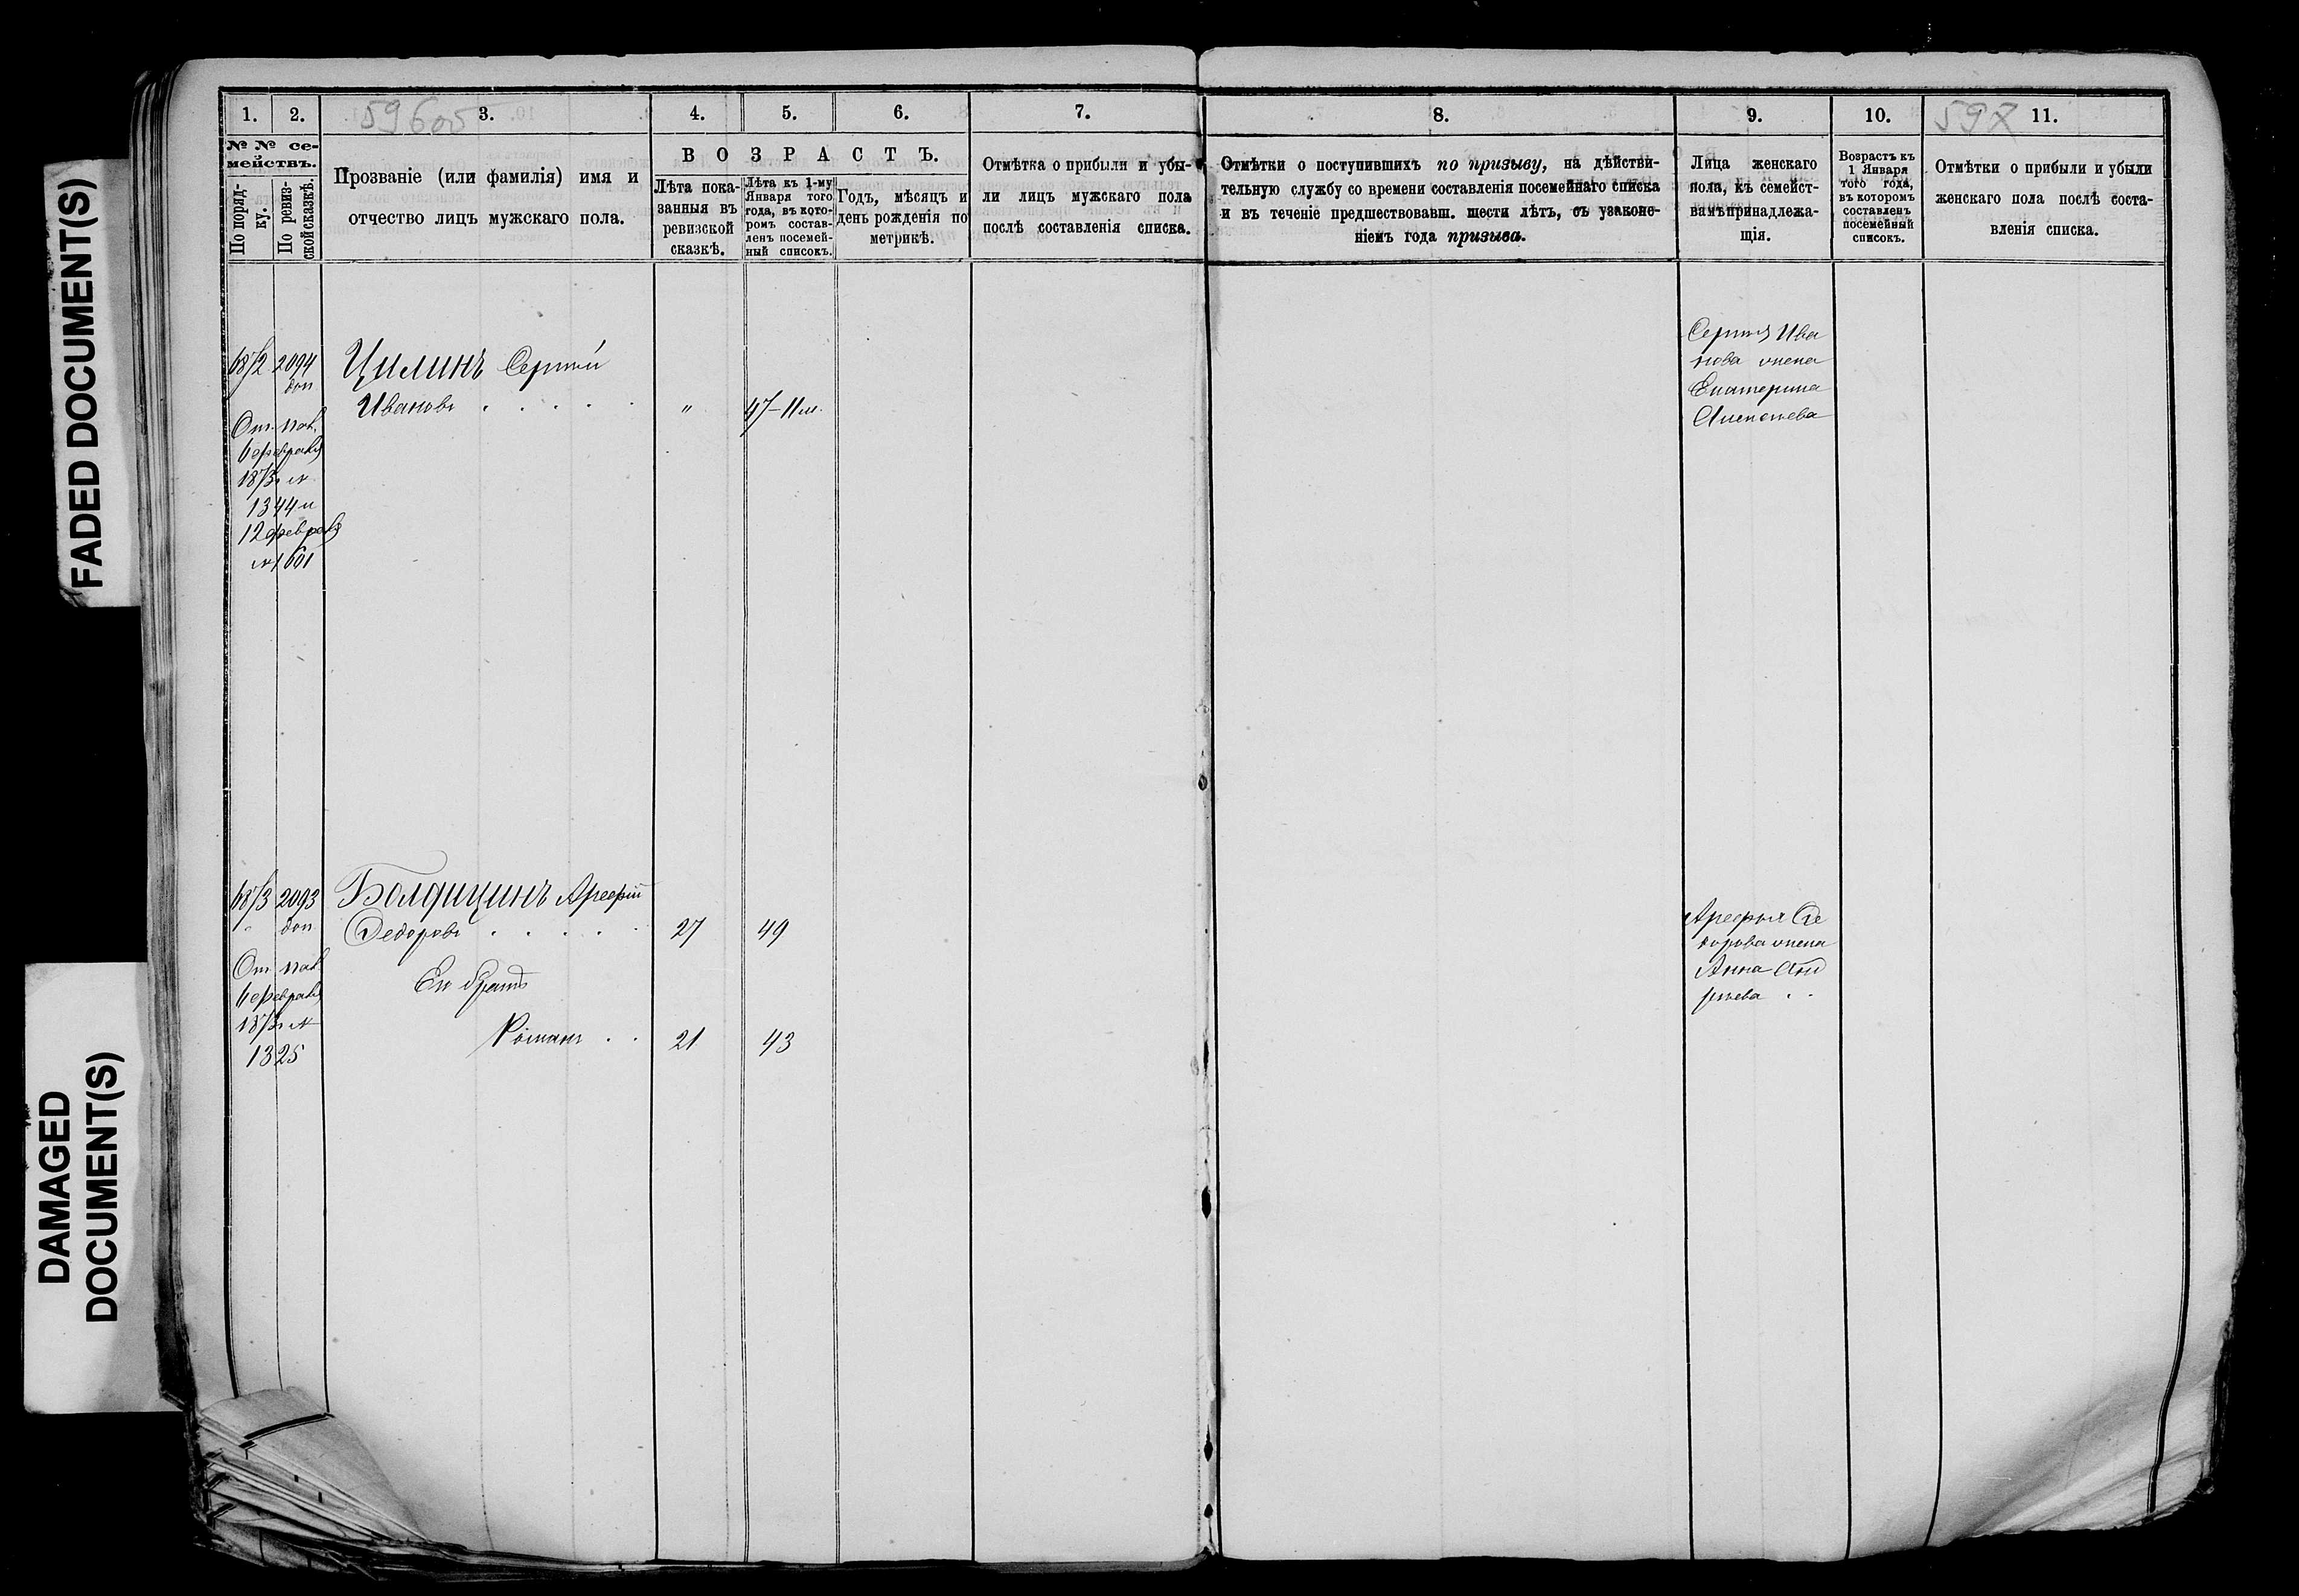 FADED DOCUMENT(S)
DAMAGED
DOCUMENT(S)
1.
2.
3.
4.
5.
6.
7.
8.
9.
10.
11.
№ № се-
мействъ.
По поряд-
ку.
По ревиз-
ской сказкѣ.
Прозваніе (или фамилія) имя и
отчество лицъ мужскаго пола.
ВОЗРАСТЪ.
Лѣта пока-
занныя въ
ревизской
сказкѣ.
Лѣта къ 1-му
Января того
года, въ кото-
ромъ состав-
ленъ посемей-
ный списокъ.
Годъ, мѣсяцъ и
день рожденія по
метрикѣ.
Отмѣтка о прибыли и убы-
ли лицъ мужскаго пола
послѣ составленія списка.
Отмѣтки о поступившихъ по призыву, на дѣйстви-
тельную службу со времени составленія посемейнаго списка
и въ теченіе предшествовавш. шести лѣтъ, съ узаконе-
ніемъ года призыва.
Лица женскаго
пола, къ семейст-
вамъ принадлежа-
щія.
Возрастъ къ
1 Января
того года,
въ которомъ
составленъ
посемейный
списокъ.
Отмѣтки о прибыли и убыли
женскаго пола послѣ соста-
вленія списка.
2094 Цилинъ Сергѣй
доп
Ивановъ " 47-11м.
6 февраля
1873 г. №
1344 и
12 февраля
№ 1601
Сергѣя Ива
нова жена
Екатерина
Алексѣева
2093 Болдицинъ Арефій
доп
Федоровъ 27 49
Его братъ
6 февраля
1873 г. №
1325
Романъ 21 43
Арефья Фе
дорова жена
Анна Анд
рѣева